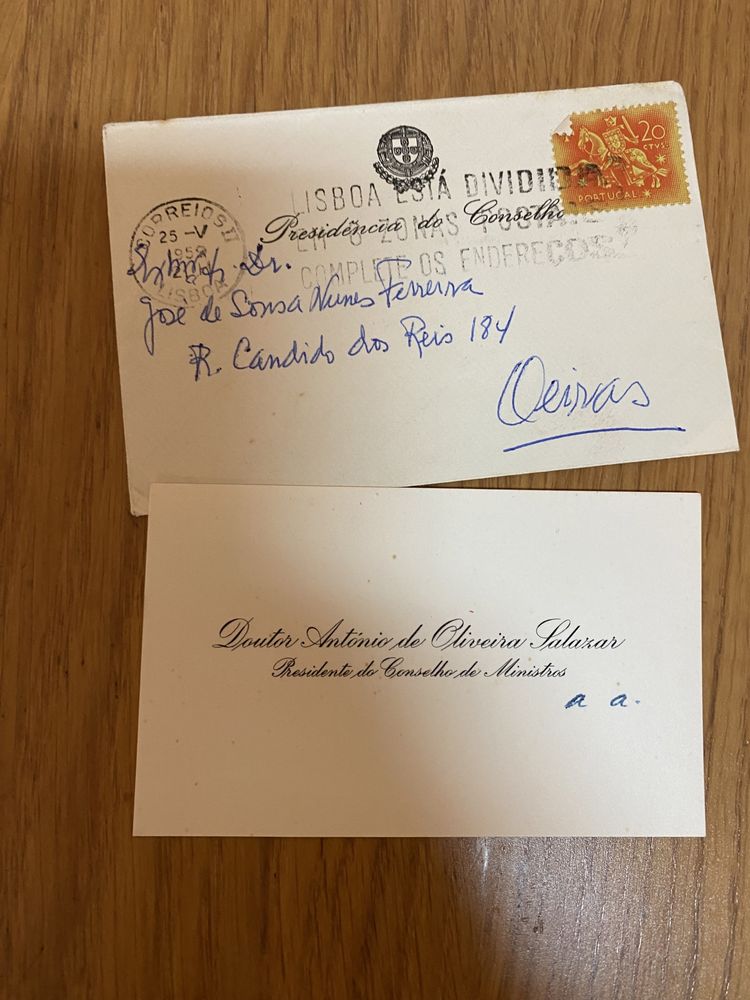 20
CTVS.
PORTUGAL
LISBOA ESTÁ DIVIDIDA
Presidência do Conselho
ZONAS POSTAIS
COMPLETE OS ENDEREÇOS
CORREIOS
25 - V
LISBOA
Dr.
José de Sousa Nunes Ferreira
R. Candido dos Reis 184
Oeiras
Doutor António de Oliveira Salazar
Presidente do Conselho de Ministros
a a.